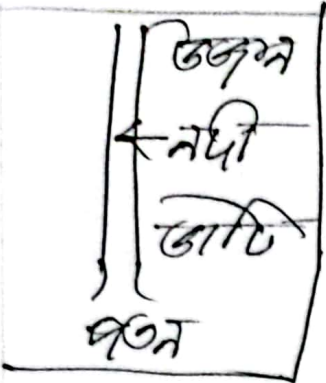 উজান
নদী
ভাটি
পতন